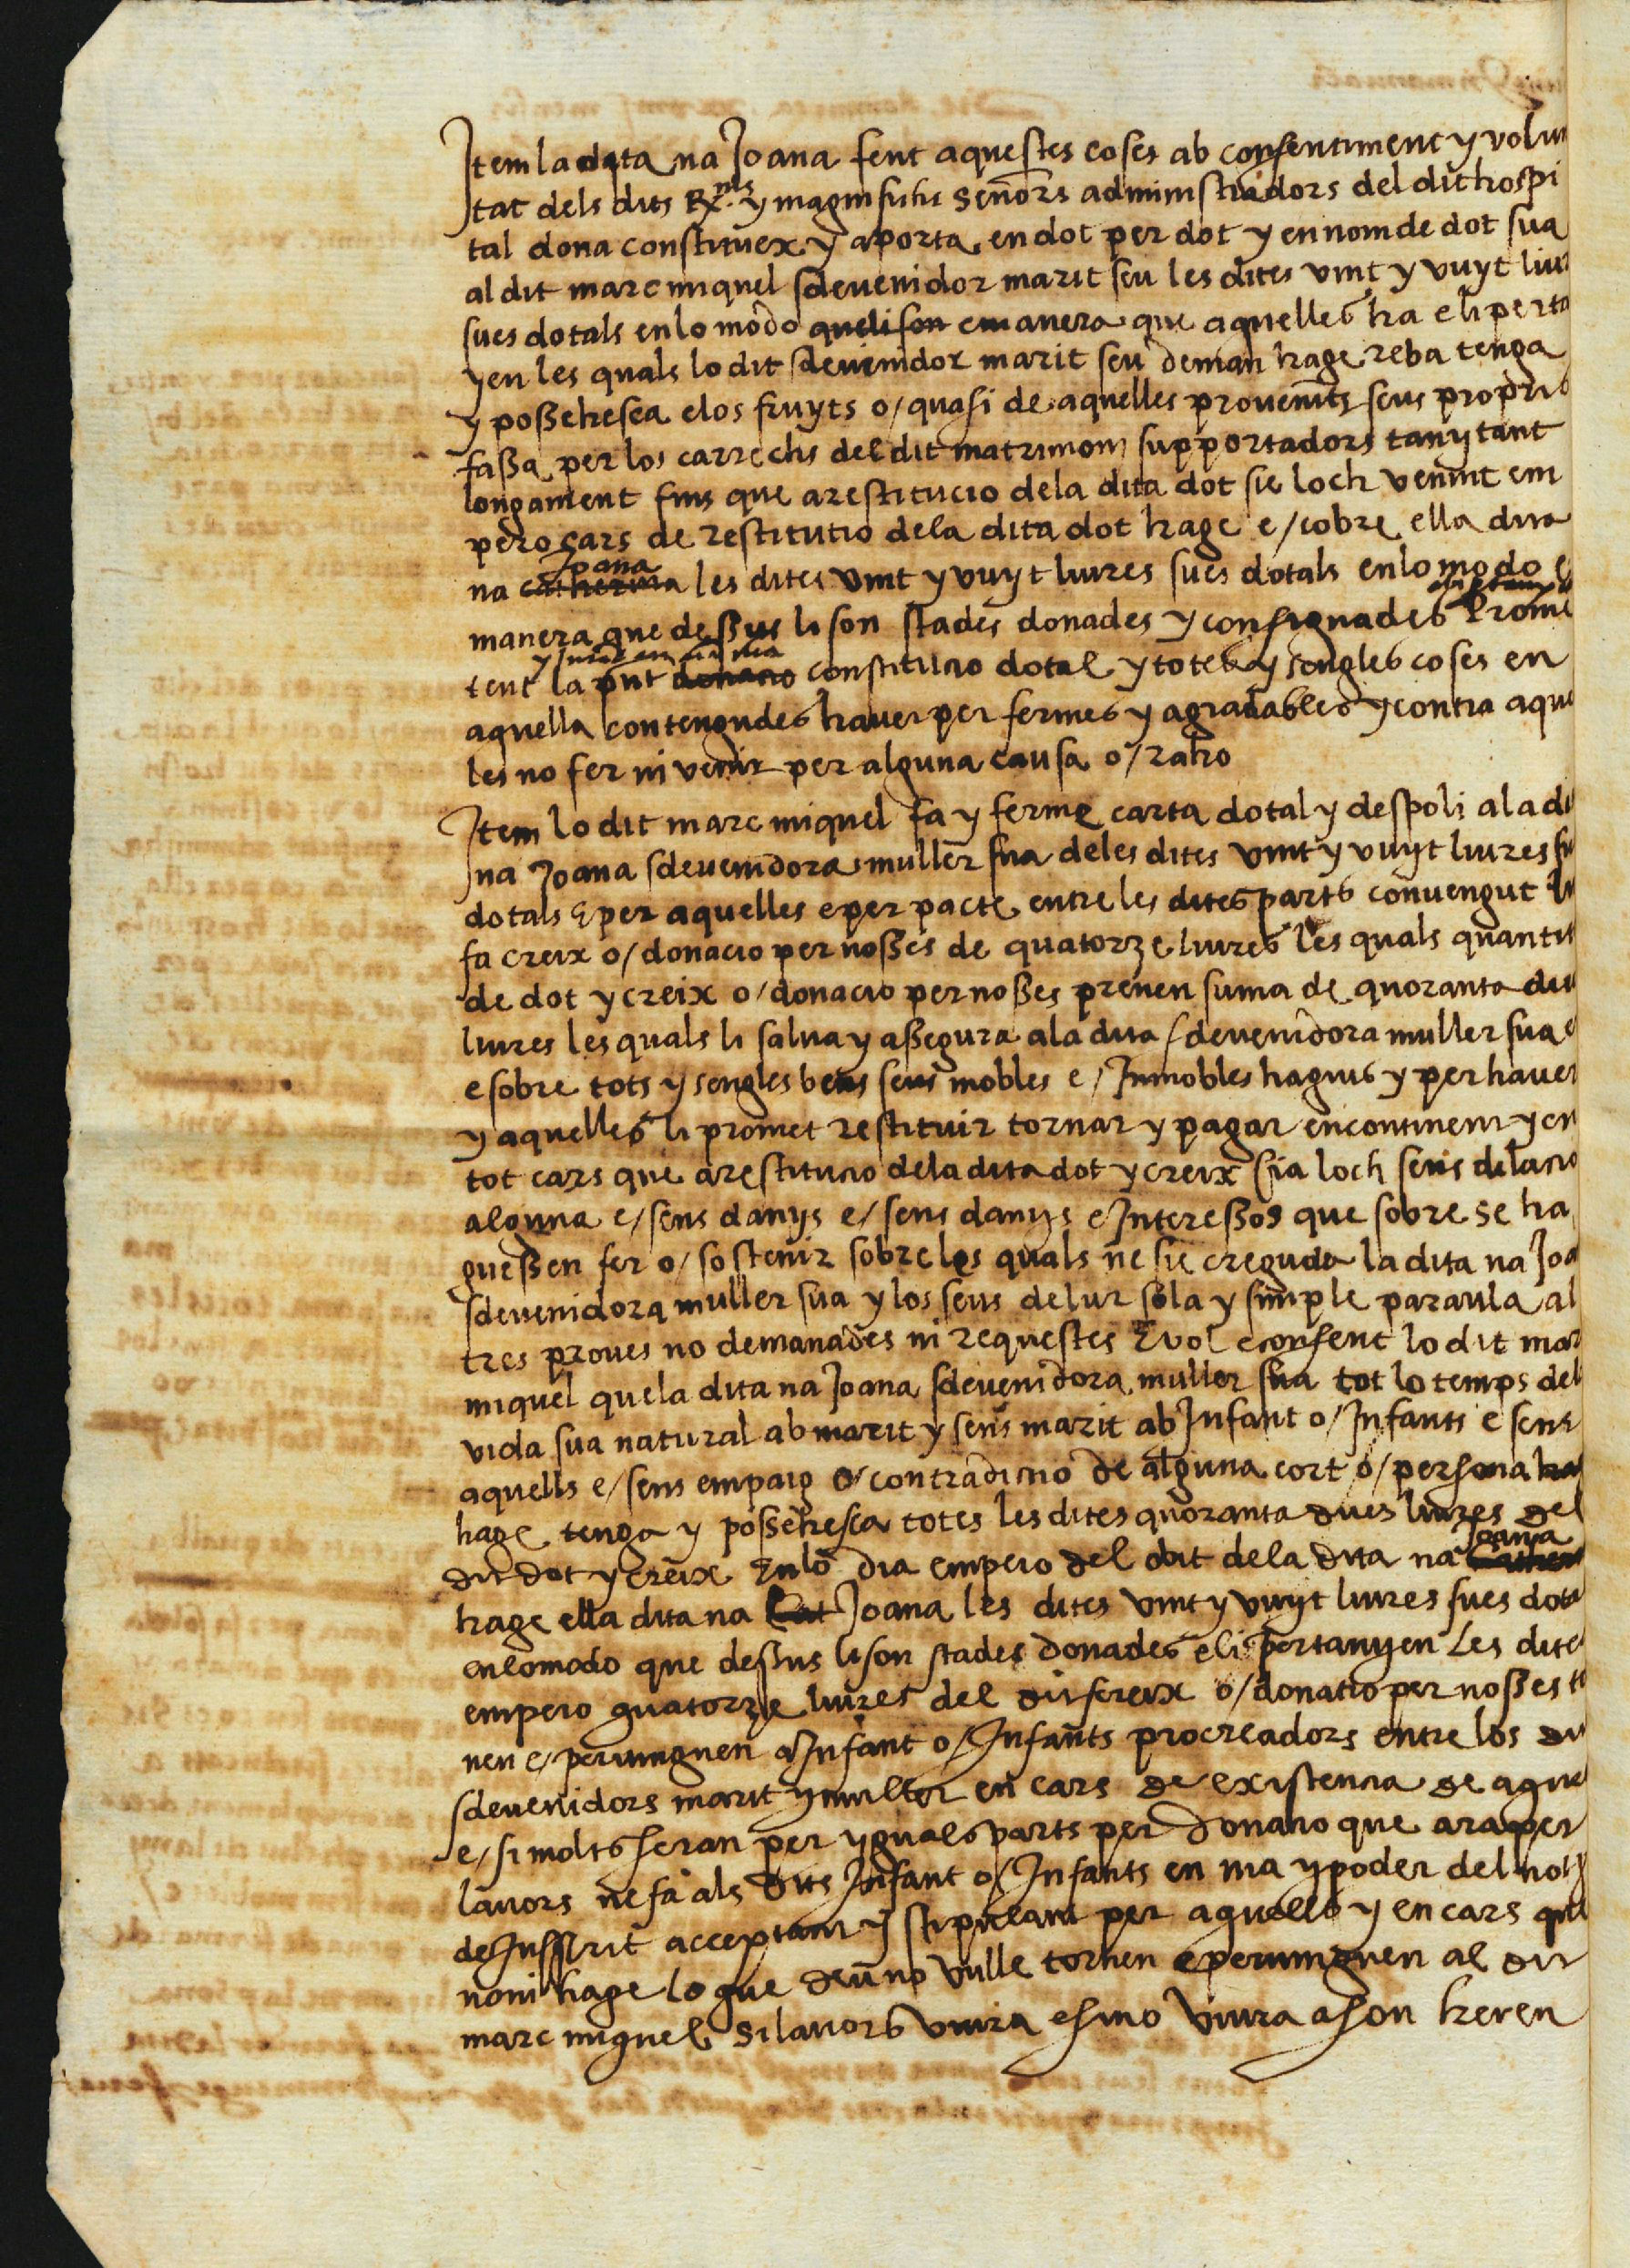 Item la dita na Joana fent aquestes coses ab consentiment y volun
tat dels dits R.nts y magnifichs señors administradors del dit hospi
tal dona constituex y aporta en dot per dot y en nom de dot sua
al dit marc miquel sdevenidor marit seu les dites vint y vuyt liur
sues dotals en lo modo que li son e manera que aquelles ha e li perta
y en les quals lo dit sdevenidor marit seu deman hage reba tenga
y possehesca e los fruyts o/ quasi de aquelles provenints seus propris
fassa per los carrechs del dit matrimoni supportadors tany tant
longament fins que a restitucio dela dita dot sie loch venint em
pero cars de restitutio dela dita dot hage e/ cobre ella dita
na catherina Joana les dites vint y vuyt liures sues dotals en lo modo e
manera que dessus li son stades donades y consignades Prome
tent la pnt donatio constitucio dotal y totes y sengles coses en
aquella contengudes haver per fermes y agradables y contra aque
les no fer ni venir per alguna causa o/ ratio
Item lo dit marc miquel fa y ferme carta dotal y despoli a la di
na Joana sdevenidora muller sua deles dites vint y vuyt liures su
dotals E per aquelles e per pacte entre les dites parts convengut li
fa creix o/ donacio per nosses de quatorze liures les quals quantit
de dot y creix o/ donacio per nosses prenen suma de quoranta dues
liures les quals li salva y assegura a la dita sdevenidora muller sua e
e sobre tots y sengles bens seus mobles e/ Inmobles haguts y per haver
y aquelles li promet restituir tornar y pagar encontinent y en
tot cars que a restitucio dela dita dot y creix sia loch sens dilacio
alguna e/ sens danys e/ sens danys e Interessos que sobre se ha
guessen fer o/ sostenir sobre los quals ne sie creguda la dita na Joa
sdevenidora muller sua y los seus de lur sola y simple paraula al
tres proves no demanades ni requestes E vol e consent lo dit mar
miquel que la dita na Joana sdevenidora muller sua tot lo temps del
vida sua natural ab marit y sens marit ab Infant o/ Infants e sens
aquells e/ sens empaig o/ contradictio de alguna cort o/ persona ha
hage tenga y possehesca totes les dites quoranta dues liures del
dit dot y creix En lo dia empero del obit dela dita na Cather Joana
hage ella dita na Cat Joana les dites vint y vuyt liures sues dota
en lo modo que dessus li son stades donades e li pertanyen Les dites
empero quatorze liures del dit screix o/ donatio per nosses to
nen e/ pervinguen a Infant o/ Infants procreadors entre los di
sdevenidors marit y muller en cars de existencia de aque
e/ si molts seran per yguals parts per donatio que ara per
lavors ne fa als dits Infant o/ Infants en ma y poder del not
deInfscrit acceptant y stipulant per aquells y en cars que
noni hage lo que deu no vulle tornen e pervinguen al dit
marc miquel si lavors viura e si no viura a son hereu